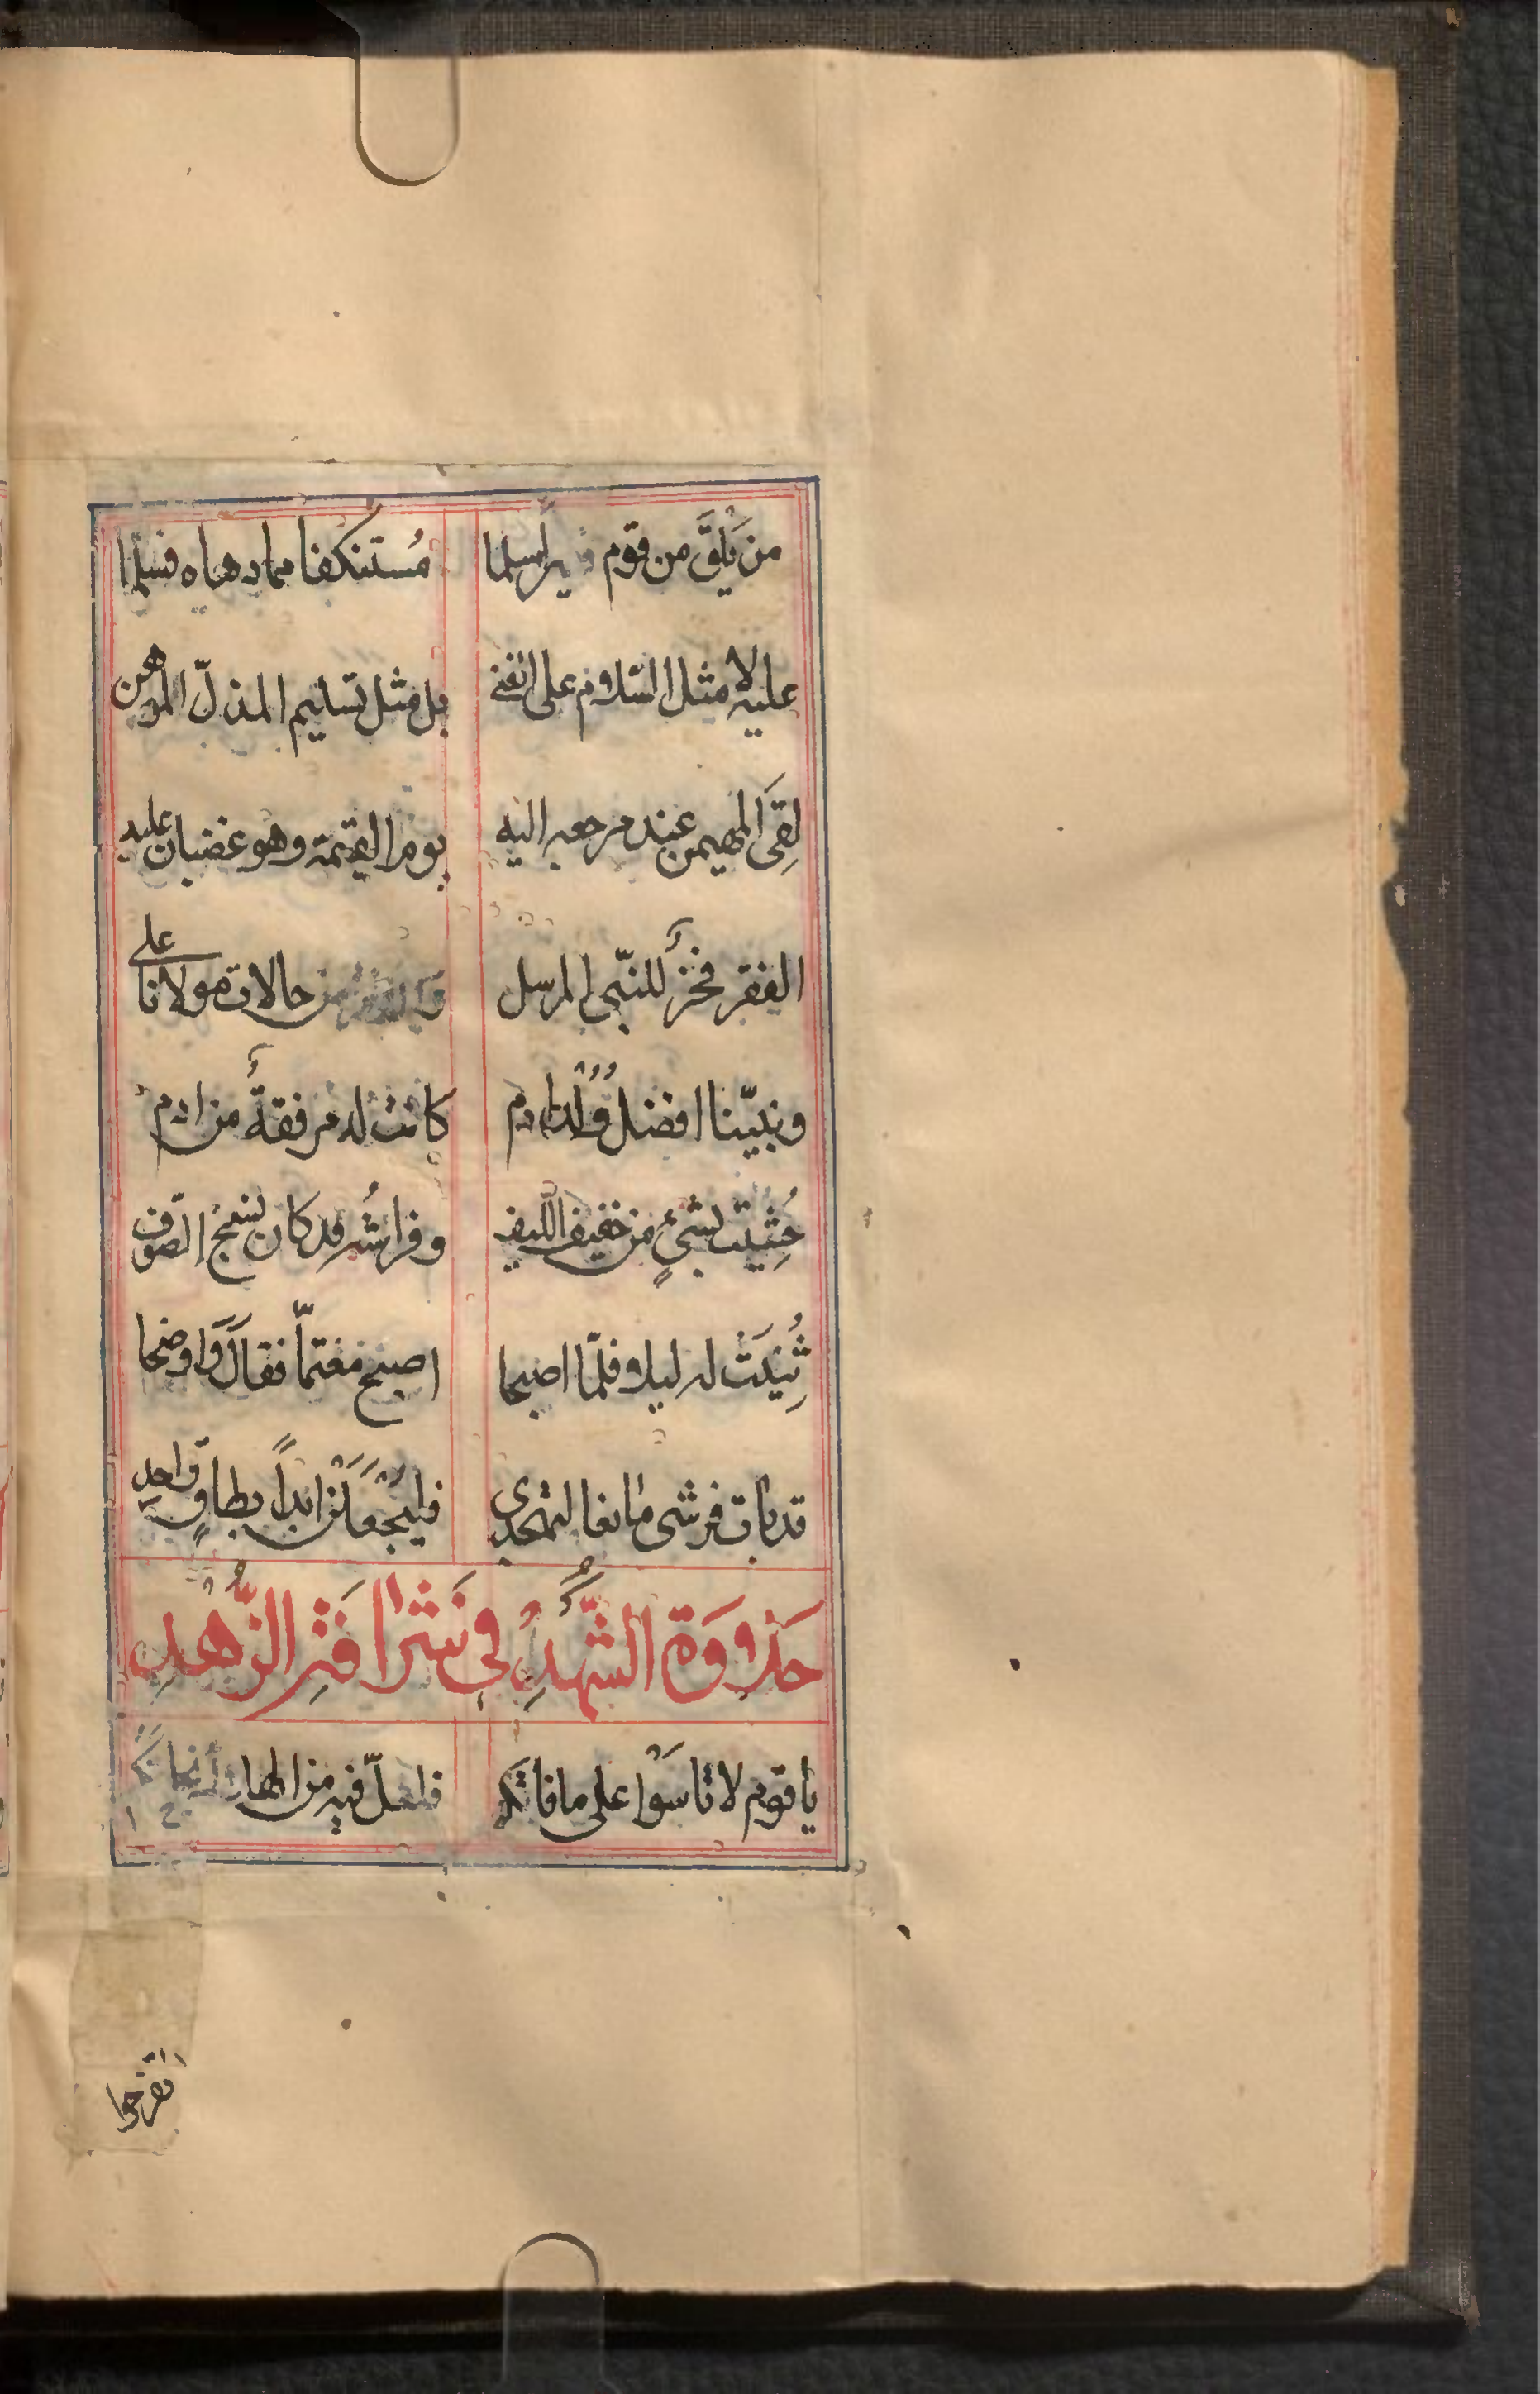 من يَلْقَ من قوم فقيراً مسلما مُستنكفا مما دهاه فسلما
عليه لا مثل السّلام على الغني بل مثل تسليم المذلّ الموهن
لِقىَ المهيمن عند مرجعه اليه يوم القيمة وهو غضبان عليه
الفقر فخرٌ للنبّي المرسل من حالات مولانا علي
ونبيّنا افضل وُلْد ادم كانت له مرفقةٌ من ادم
حُشِيَت بشیءٍ من خفيف الليف وفراشُه قد كان نسج الصّوف
ثُنِيَتْ له ليلا فلمّا اصبحا اصبح مغتمّا فقالَ وَاوضحا
قد بات فرشى مانعا لتهجدى فليُجْعَلَنْ ابداً بطاقٍ واحدِ
حَلاوَةُ الشَّهْدِ في نَشْرِ اَثَرِ الزُّهْدِ
يا قوم لا تاسَوْا على ما فاتكم فلعلّ فيه من
تفرحوا